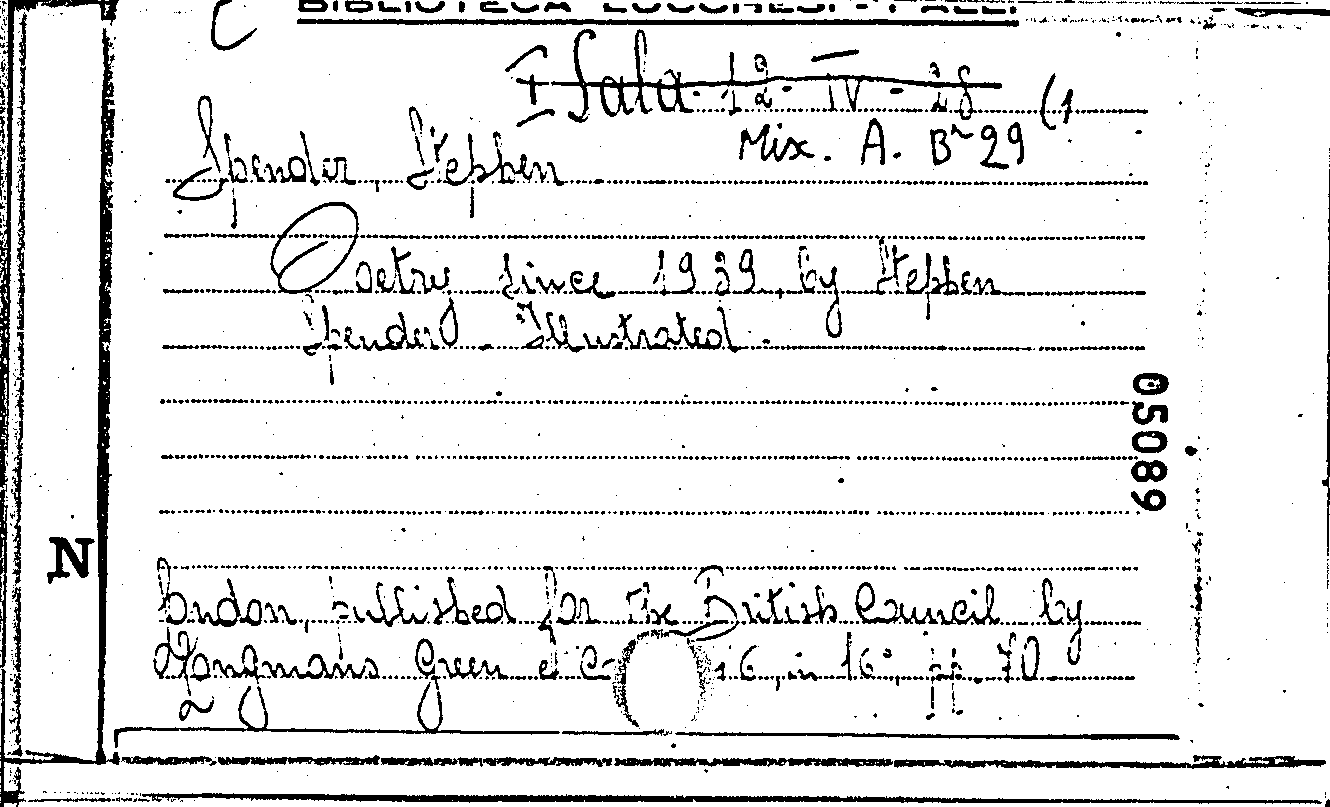 BIBLIOTECA LUCCHESI-PALLI
I Sala 12 - IV - 28 (1
Mix. A. Bª 29
Spender, Stephen
Poetry since 1939, by Stephen
Spender - Illustrated.
05089
N
London, published for the British Council by
Longmans Green et C 6, in 16°, pp. 70